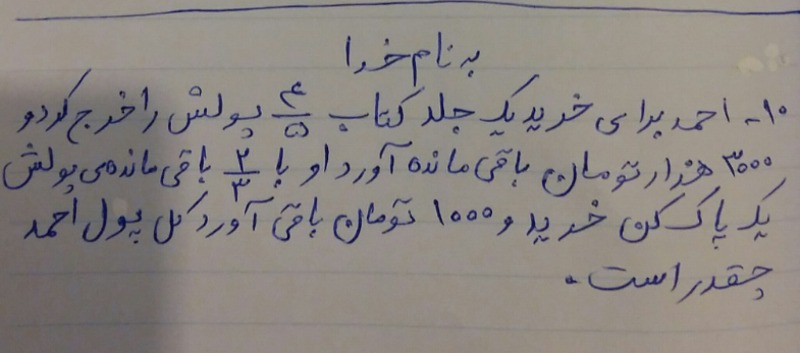 به نام خدا
۱۰- احمد برای خرید یک جلد کتاب ۴/۵ پولش را خرج کرد و
۳۰۰۰ هزار تومان باقی مانده آورد او با ۲/۳ باقی مانده‌ی پولش
یک پاک کن خرید و ۱۰۰۰ تومان باقی آورد کل پول احمد
چقدر است.